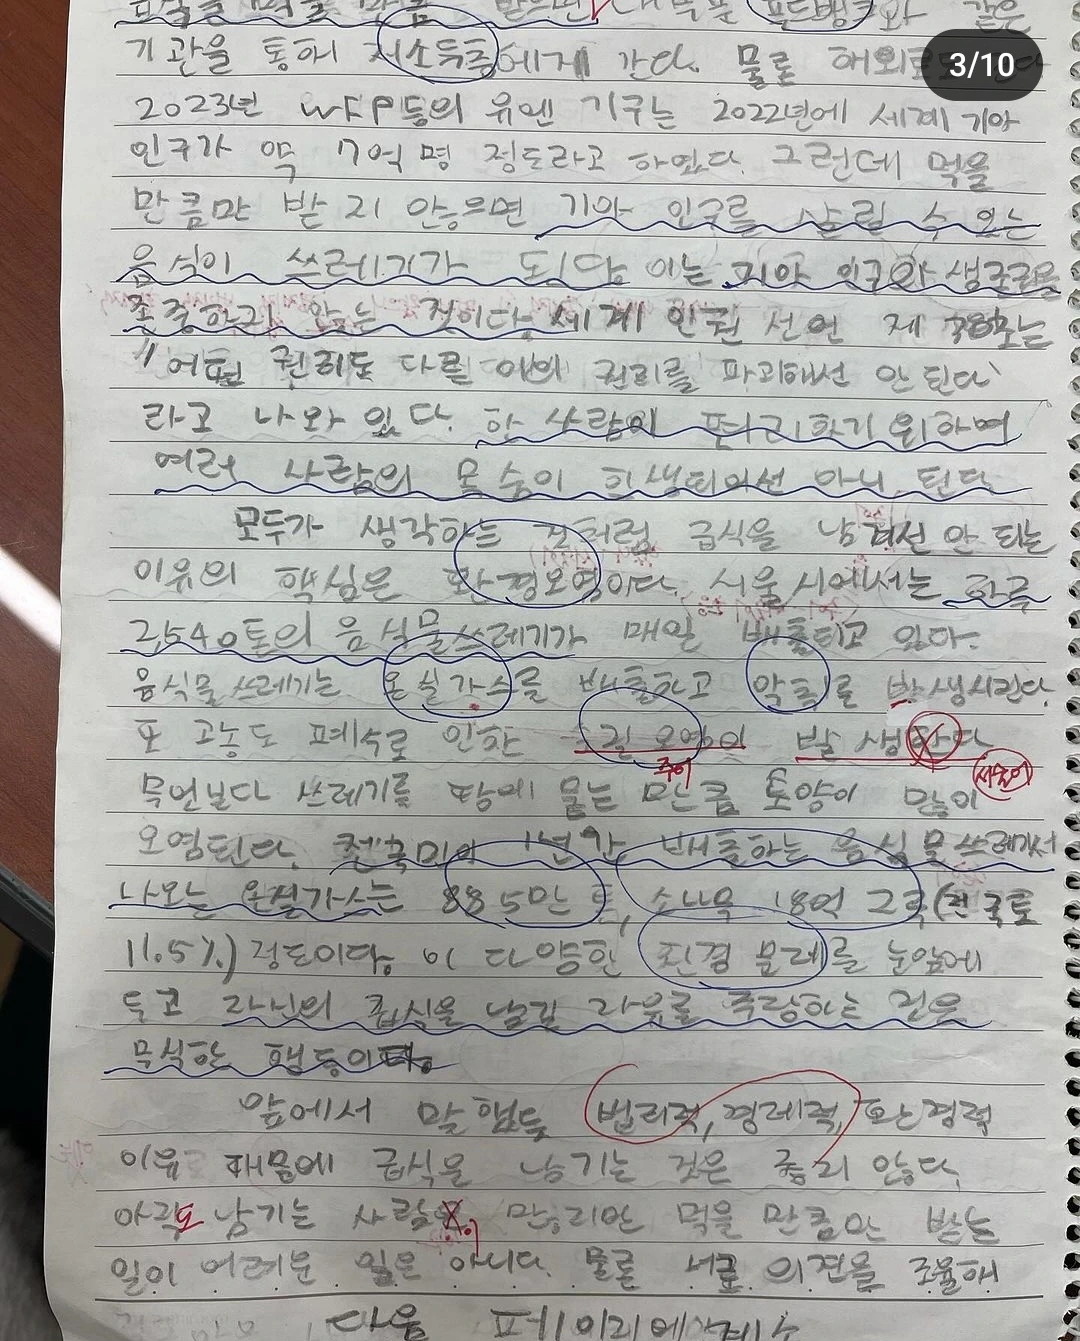 기관을 통해 저소득층에게 간다. 물론 해외로
3/10
2023년 WFP등의 유엔 기구는 2022년에 세계 기아
인구가 약 7억 명 정도라고 하였다. 그런데 먹을
만큼만 받지 않으면 기아 인구를 살릴 수 있는
음식이 쓰레기가 된다 이는 기아 인구의 생존권을
존중하지 않는 것이다. 세계 인권 선언 제 30조는
"어떤 권리도 다른 이의 권리를 파괴해선 안 된다"
라고 나와 있다. 한 사람이 편리하기 위하여
여러 사람의 목숨이 희생되어선 아니 된다
모두가 생각하는 것처럼 급식을 남겨선 안 되는
이유의 핵심은 환경오염이다. 서울시에서는 하루
2,540톤의 음식물쓰레기가 매일 배출되고 있다.
음식물 쓰레기는 온실가스를 배출하고 악취를 발생시킨다.
또 고농도 폐수로 인한 수질 오염이 발생한다
주어 서술어
무엇보다 쓰레기를 땅에 묻는 만큼 토양이 많이
오염된다. 전국민이 1년간 배출하는 음식물 쓰레기에서
나오는 온실가스는 885만 톤, 소나무 18억 그루(전 국토
11.5%) 정도이다. 이 다양한 환경 문제를 눈앞에
두고 자신의 급식을 남길 자유를 주장하는 것은
무식한 행동이다.
앞에서 말했듯 법리적, 경제적, 환경적
이유 때문에 급식을 남기는 것은 좋지 않다.
아직도 남기는 사람이 많지만 먹을 만큼만 받는
일이 어려운 일은 아니다. 물론 서로 의견을 조율해